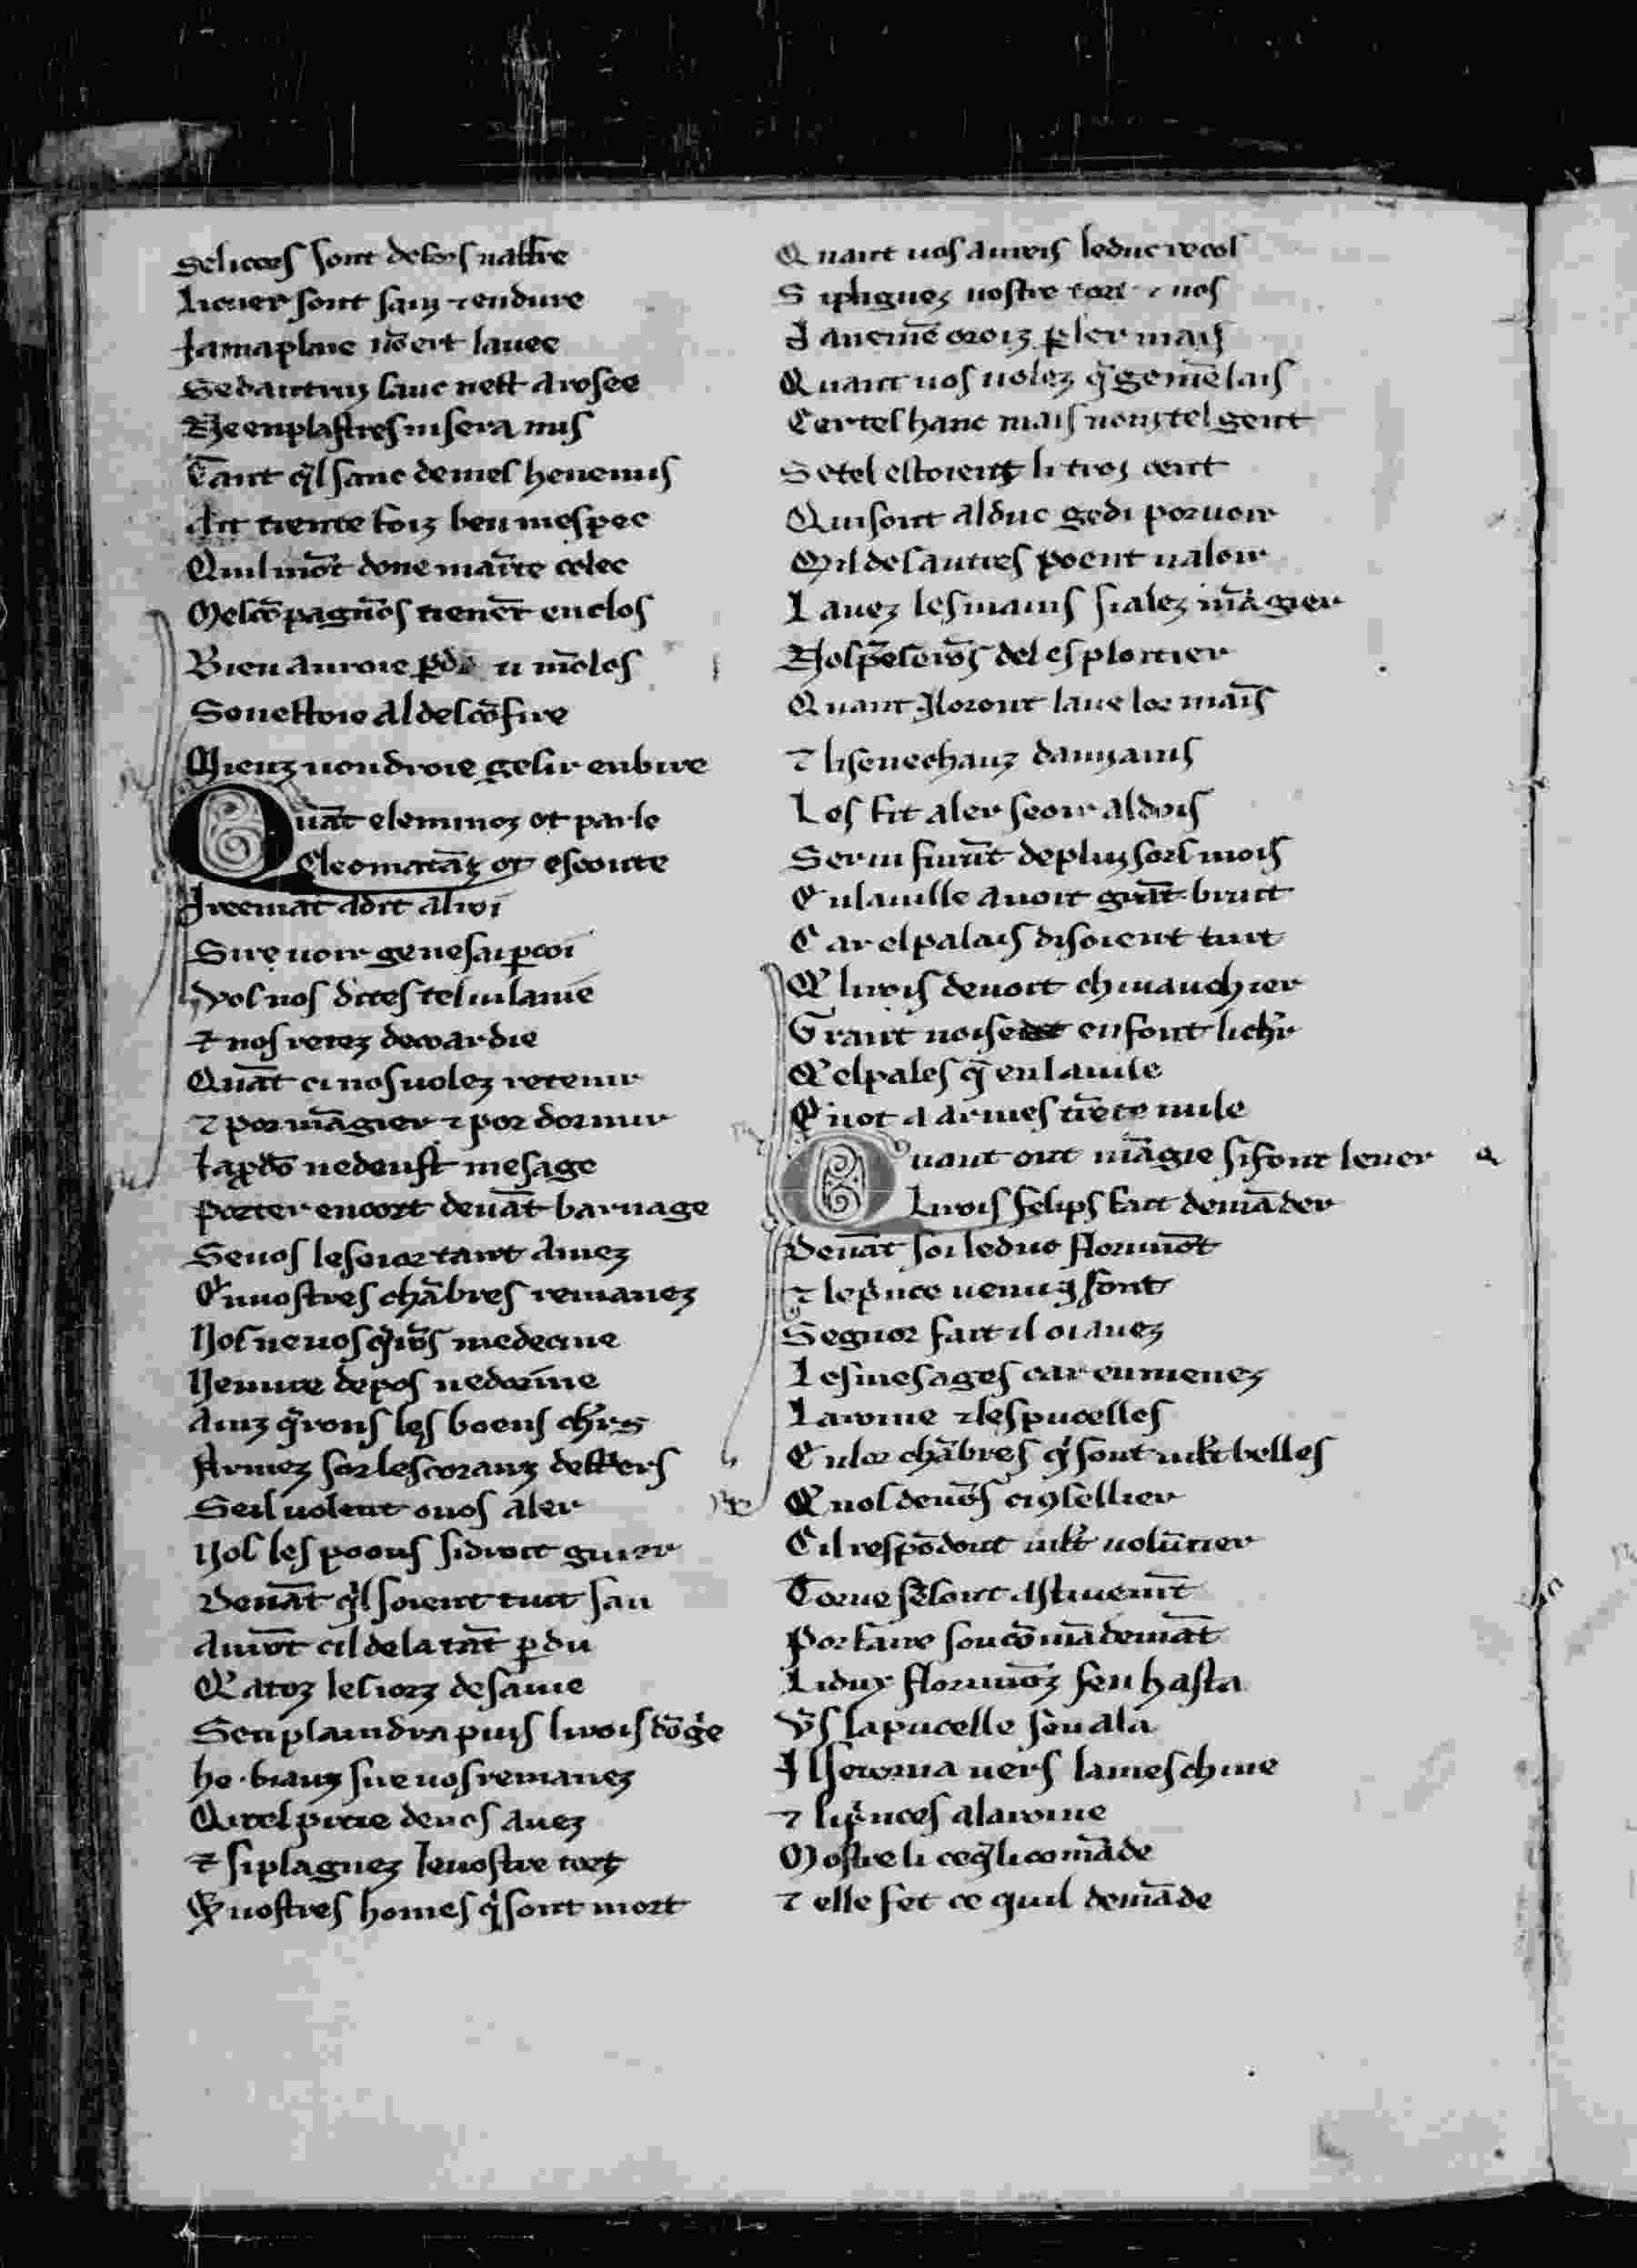 Se li cors sont defors naffre
Li cuer sont sain ⁊ endure
Ja ma plaie nō ert lauee
Se dautrui sanc nest arosee
Ne enplastres ni sera mis
Tant q̄l sanc de mes henemis
Ait trente foiz ben mespee
Qui lmōt done maīte colee
Mes cōpagnōs tienēt enclos
Bien auroie ꝑdu
Se uestoie al desconfire
Mieuz uondroie gesir en bire
Quāt eleminoz ot parle
Cleomatāz ot escoute
Ireemāt a dit al roi
Sire uoir ge ne sai ꝑcoi
Vos nos dites tel uilanie
⁊ nos retez de coardie
Quāt ci nos uolez retenir
⁊ por māgier ⁊ por dormir
Ja ꝑdō ne deust mesage
Porter en cort deuāt barnage
Se uos le seior tant amez
En uostres chābres remanez
Nos ne uos q̄rōs medecine
Ne mire de pos ne dorīne
Ainz q̄rons les boens chrs
Armez sor les coranz destrers
Se il uolent o uos aler
Nos les poons si droit guier
Deuāt q̄l soient tuit san
Aurōt cil de la tāt ꝑdu
Qa toz les iorz de sa uie
Sen plaindra puis li rois dōgͥe
He biauz sire uos remanez
Qi tel pitie de nos auez
⁊ si plagnez le uostre tort
Et uostres homes q̄ sont mort
Quant uos aureis le duc recos
Si plagnez uostre tort ⁊ uos
Ja ueme oroiz ꝑler mais
Quant uos uolez q̄ge mē lais
Certes hanc mais nou з tel gent
Se tel estoient li troz cent
Qui sont al duc ge di por uoir
Mil des autres poent ualoir
Lauez les mains si alez māgier
Nos pēserōs del esploitier
Quant il oront laue lor maīs
⁊ li senechauz damians
Les fit aler seoir al dois
Serui furāt de pluz sors mois
En la uille auoit grāt bruit
Car el palais disoient tuit
Q li rois deuoit cheuauchier
Grant noise en font li chr
Qel pales q̄ en la uile
En ot a armes trēte mile
Quant ont māgie si font leuer
Li rois felips fait demāder
Deuāt soi le duc florimōt
⁊ le pͥnce uenu q̄ sont
Segnor fait il oi auez
Les mesages car en menez
La roine ⁊ les pucelles
En lor chābres q̄ sont mlt belles
Q nos deuōs ci ꝯsellier
Cil respōdont mlt uolūtier
Torne se sont astiuemt
Por faire son cōmādemāt
Li dux florimōz sen hasta
Vs la pucelle sen ala
Il se torna uers la meschine
⁊ li pͥnces a la roine
Mostre li ce q̄ li comāde
⁊ elle fet ce quil demāde